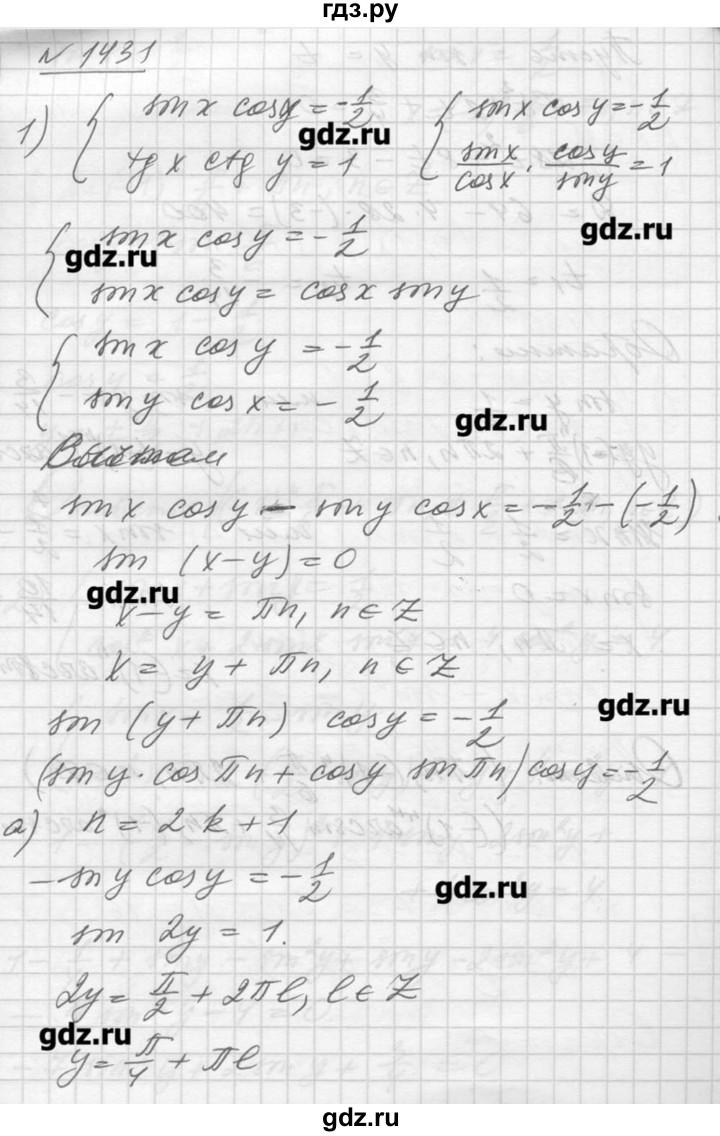 гдз.ру
N 1431
1) { sin x cos y = -1/2
tg x ctg y = 1
{ sin x cos y = -1/2
sin x / cos x · cos y / sin y = 1
gdz.ru
gdz.ru
{ sin x cos y = -1/2
gdz.ru
sin x cos y = cos x sin y
{ sin x cos y = -1/2
sin y cos x = -1/2
gdz.ru
sin x cos y - sin y cos x = -1/2 - (-1/2)
sin (x-y) = 0
gdz.ru
x - y = πn, n ∈ Z
x = y + πn, n ∈ Z
gdz.ru
sin (y + πn) cos y = -1/2
(sin y · cos πn + cos y sin πn) cos y = -1/2
а) n = 2k + 1
- sin y cos y = -1/2
gdz.ru
sin 2y = 1.
2y = π/2 + 2πl, l ∈ Z
gdz.ru
y = π/4 + πl
gdz.ru